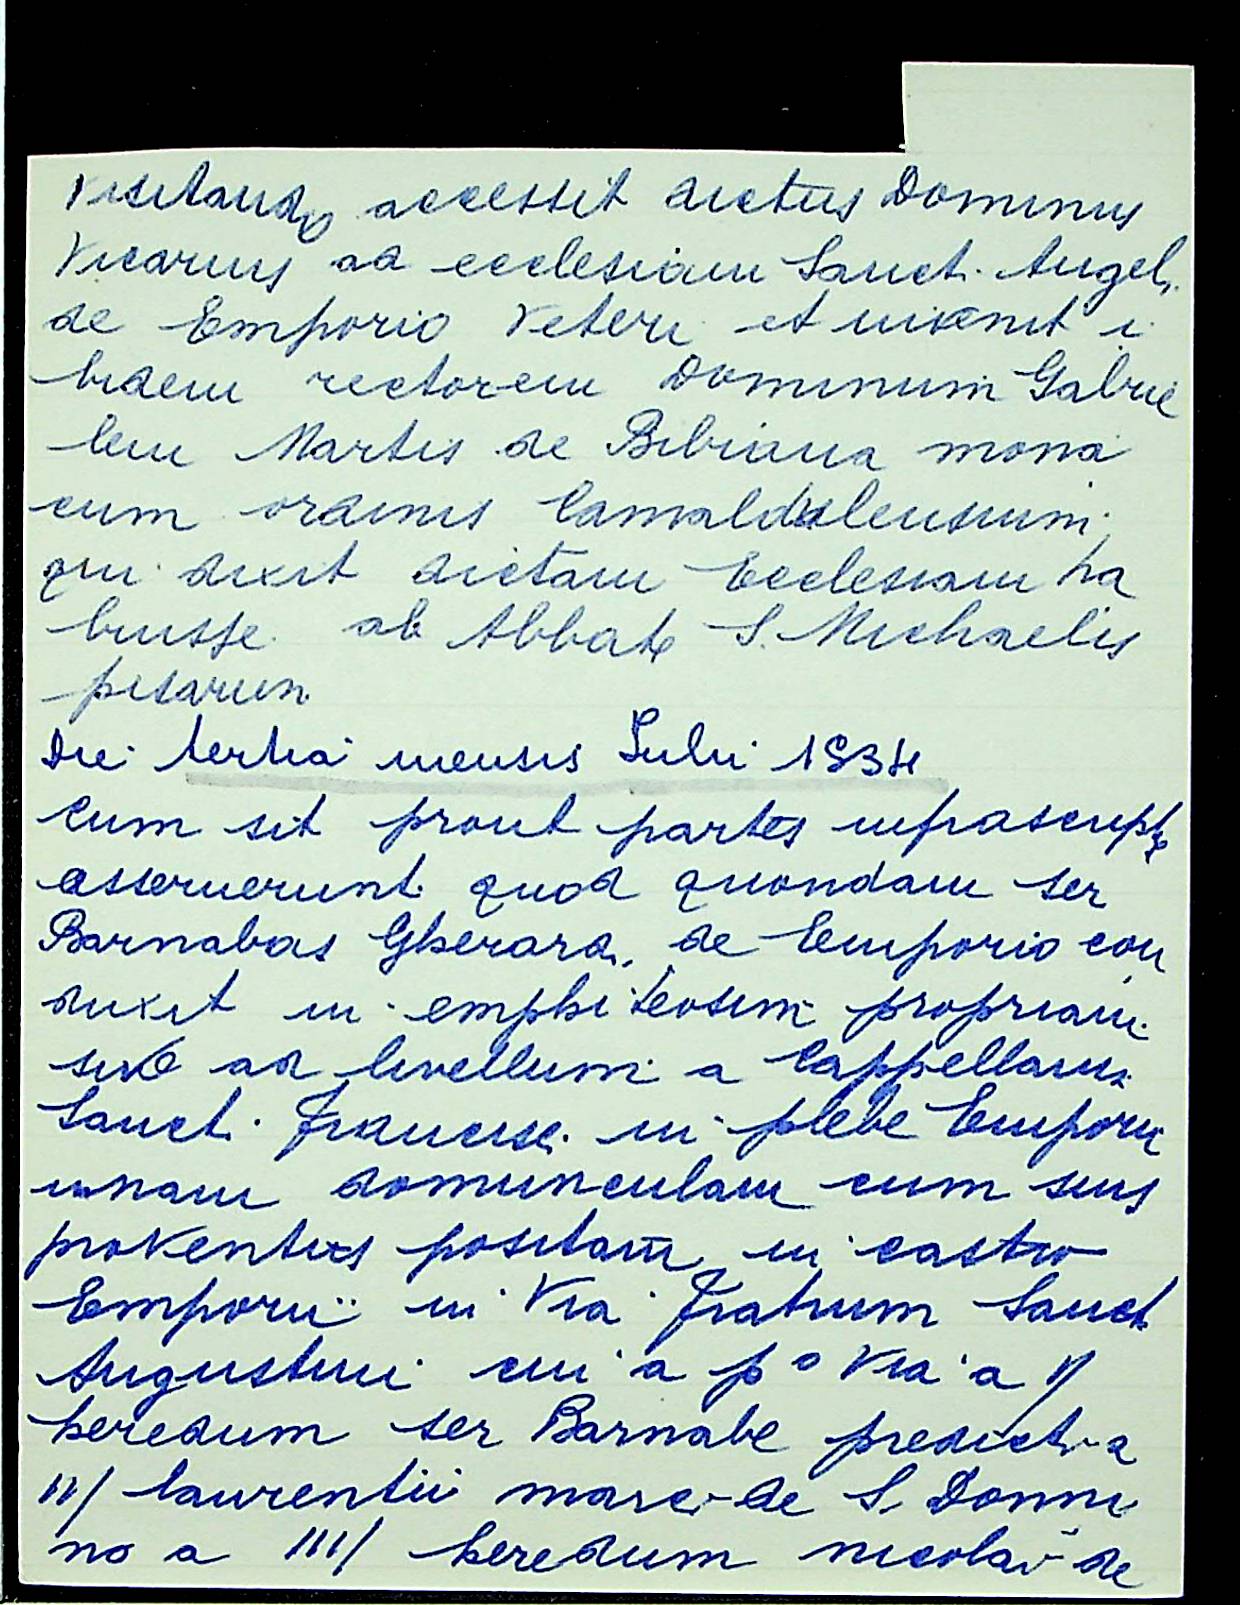 visitando accessit dictus Dominus
Vicarius ad ecclesiam Sancti Angeli
de Emporio Veteri et invenit i
bidem rectorem Dominum Gabrie
lem Martis de Bibiana mona
cum ordinis Camaldulensium
qui dixit dictam Ecclesiam ha
buisse ab Abbate S. Michaelis
pisarum
Die tertia mensis Iulii 1534
cum sit prout partes infrascripte
asseruerunt quod quondam ser
Barnabas Gherardi de Emporio con
duxit in emphiteosim propriam
sive ad livellum a Cappellanis
Sancti Francisci in plebe Emporii
unam domunculam cum suis
proventus positam in castro
Emporii in Via Fratrum Sancti
Augustini cui a p° via a II/
heredum ser Barnabe predicti a
III/ laurentii marci de S. Donni
no a IIII/ heredum nicolai de